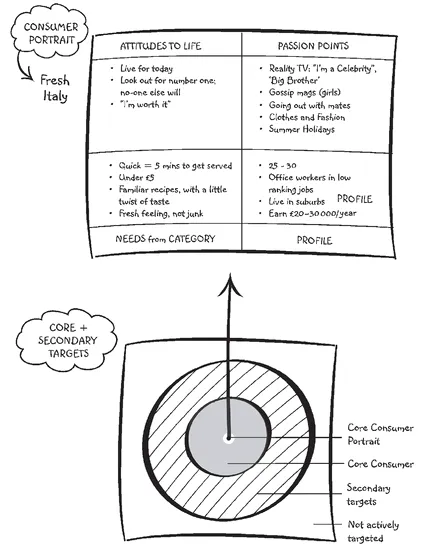 CONSUMER
PORTRAIT
Fresh
Italy
ATTITUDES TO LIFE
PASSION POINTS
• Live for today
• Look out for number one;
no-one else will
• "I'm worth it"
• Reality TV: "I'm a Celebrity",
'Big Brother'
• Gossip mags (girls)
• Going out with mates
• Clothes and Fashion
• Summer Holidays
• Quick = 5 mins to get served
• Under £5
• Familiar recipes, with a little
twist of taste
• Fresh feeling, not junk
• 25 - 30
• Office workers in low
ranking jobs
• Live in suburbs
PROFILE
• Earn £20-30000/year
NEEDS from CATEGORY
PROFILE
CORE +
SECONDARY
TARGETS
Core Consumer
Portrait
Core Consumer
Secondary
targets
Not actively
targeted